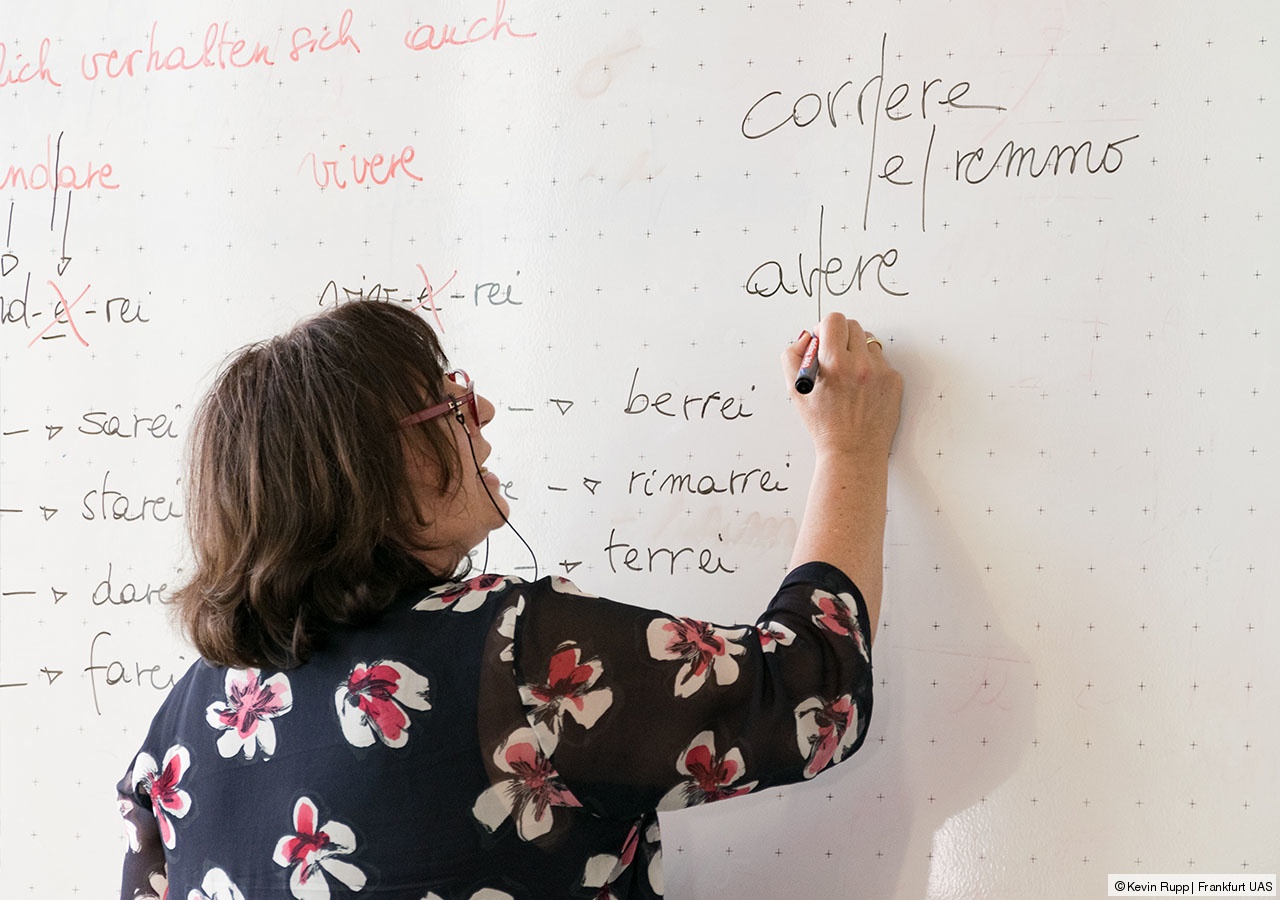 lich verhalten sich auch
correre
ndare vivere
e/remmo
avere
nd-e-rei viv-e-rei
→ sarei → berrei
→ starei e → rimarrei
→ darei → terrei
→ farei
©Kevin Rupp | Frankfurt UAS